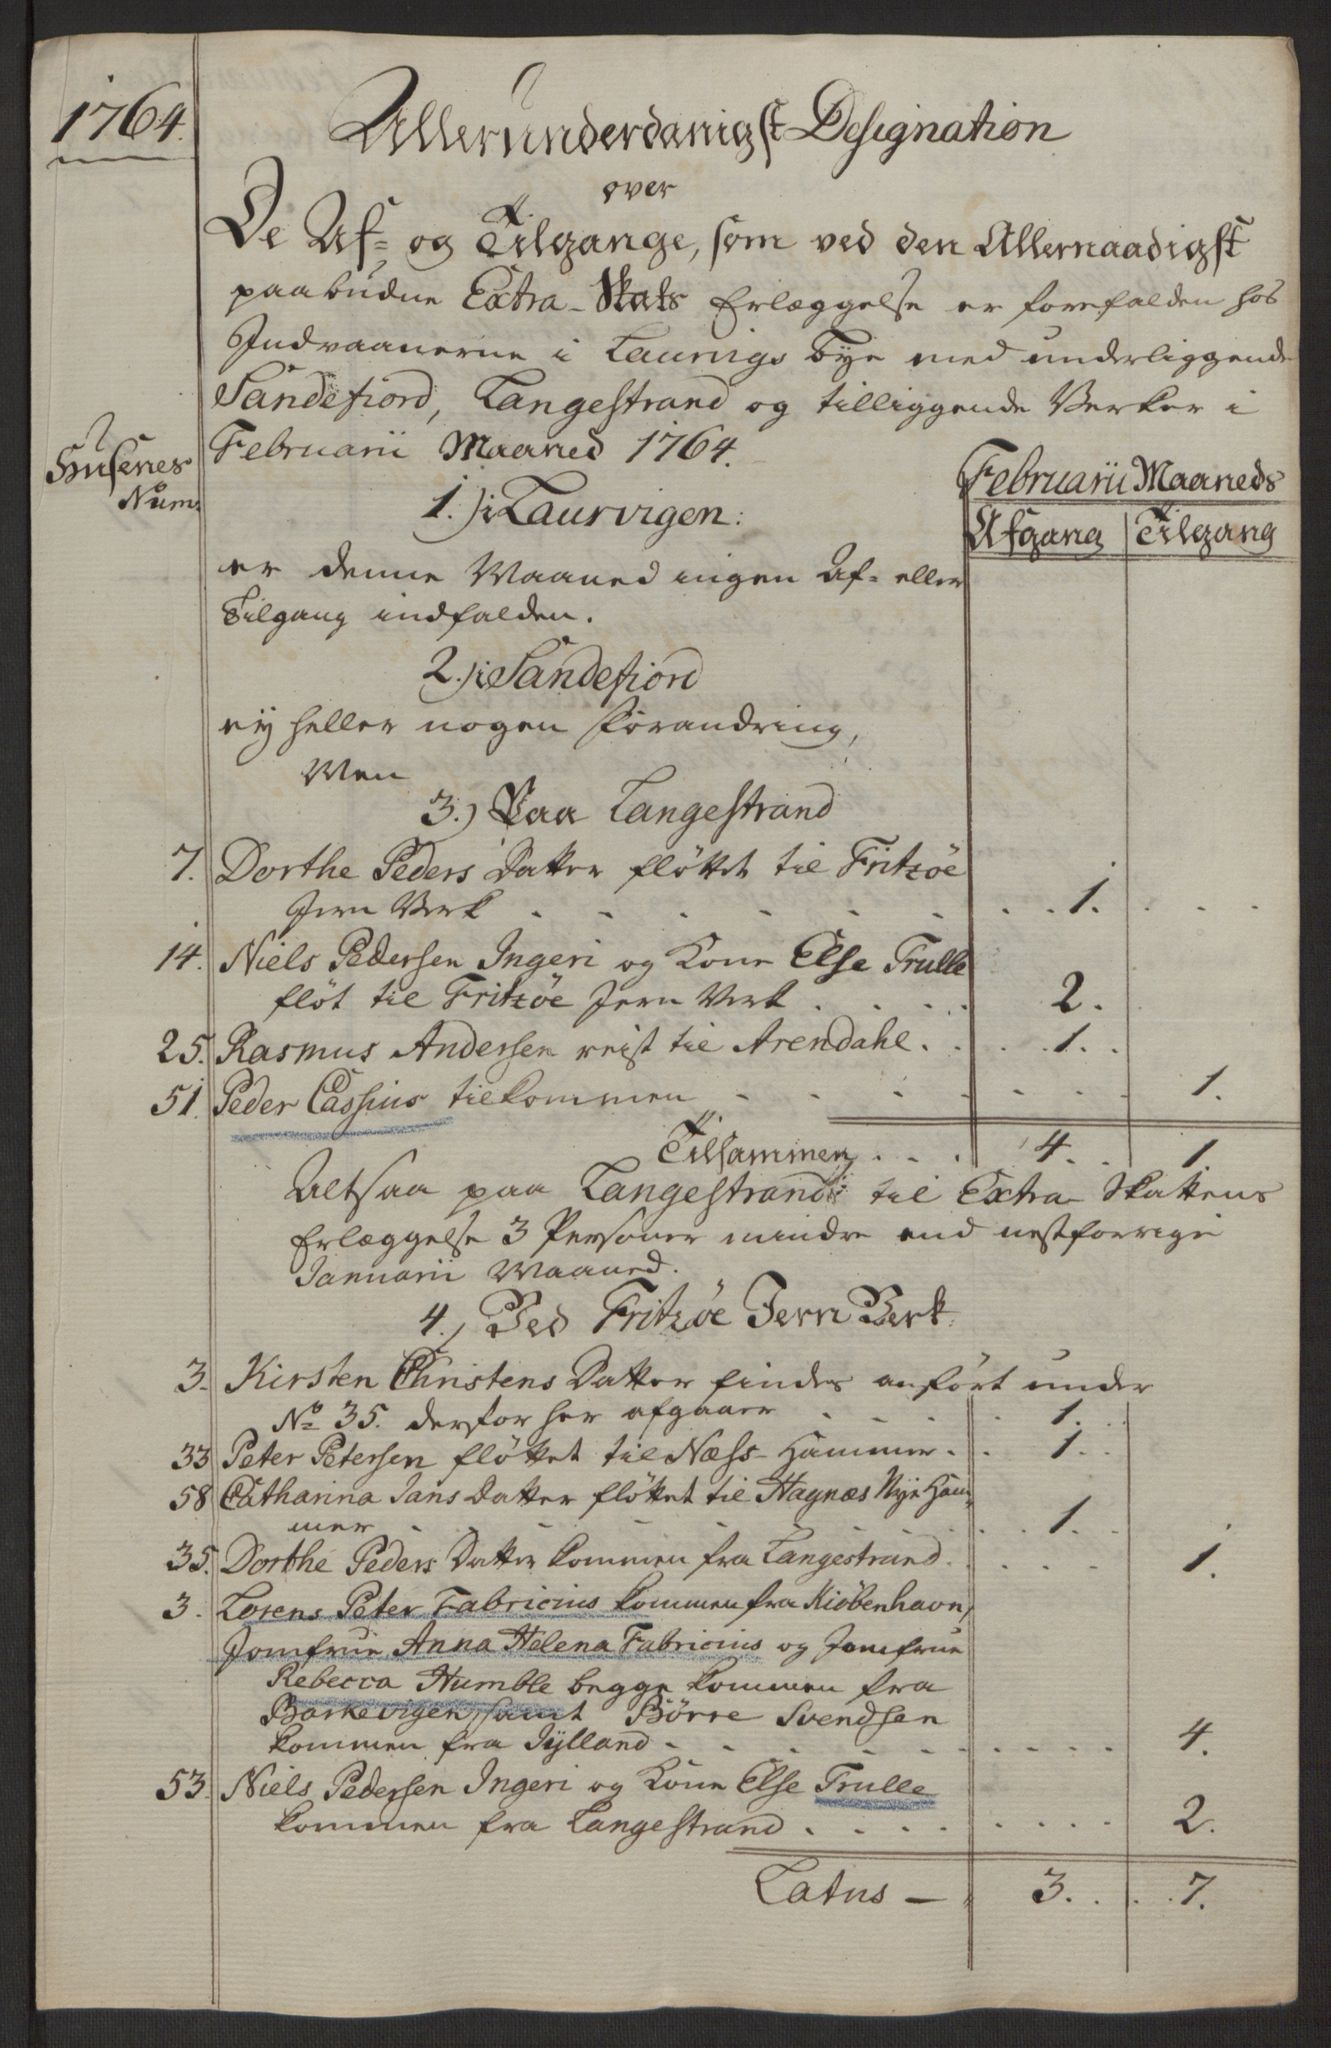 1764.
Allerunderdanigst Designation
over
De Af- og Tilgange, som ved den Allernaadigst
paabudne Extra-Skats Erlæggelse er forefalden hos
Indvaanerne i Laurvigs Bye med underliggende
Sandefiord, Langestrand og tilliggende Verker i
Februarii Maaned 1764.
Husenes
Num:
Februarii Maaneds
Afgang Tilgang
1.) i Laurvigen:
er denne Maaned ingen Af- eller
Tilgang indfalden.
2.) i Sandefiord
ey heller nogen Forandring,
Men
3.) Paa Langestrand
7. Dorthe Peders Datter fløttet til Fritzöe
Jern Verk . . . . . . . . 1. . . .
14. Niels Pedersen Ingeri og Kone Else Trulle
fløt til Fritzöe Jern Verk . . . . 2.
25. Rasmus Andersen reist til Arendahl. . . . 1. .
51. Peder Cassius tilkommen . . . . . . . . 1.
Tilsammen . . . 4. . 1
Altsaa paa Langestrand til Extra Skattens
Erlæggelse 3 Personer mindre end nestforrige
Januarii Maaned.
4.) Ved Fritzöe Jern Verk.
3. Kirsten Christens Datter findes anført under
No 35. derfor her afgaaer . . . . . 1. .
33 Peter Petersen fløttet til Næss-Hammer. . 1. .
58 Catharina Jans Datter fløttet til Hagnæs Nye Ham-
mer . . . . . . . . 1. . .
35. Dorthe Peders Datter kommen fra Langestrand. . . . . 1.
3. Lorens Peter Fabricius kommen fra Kiöbenhavn,
Jomfrue Anna Helena Fabricius og Jomfrue
Rebecca Humble begge kommen fra
Barkevigen, samt Börre Svendsen
kommen fra Jylland . . . . . . . . . 4.
53. Niels Pedersen Ingeri og Kone Else Trulle
kommen fra Langestrand . . . . . . . . 2.
Latus — 3. . . . 7.